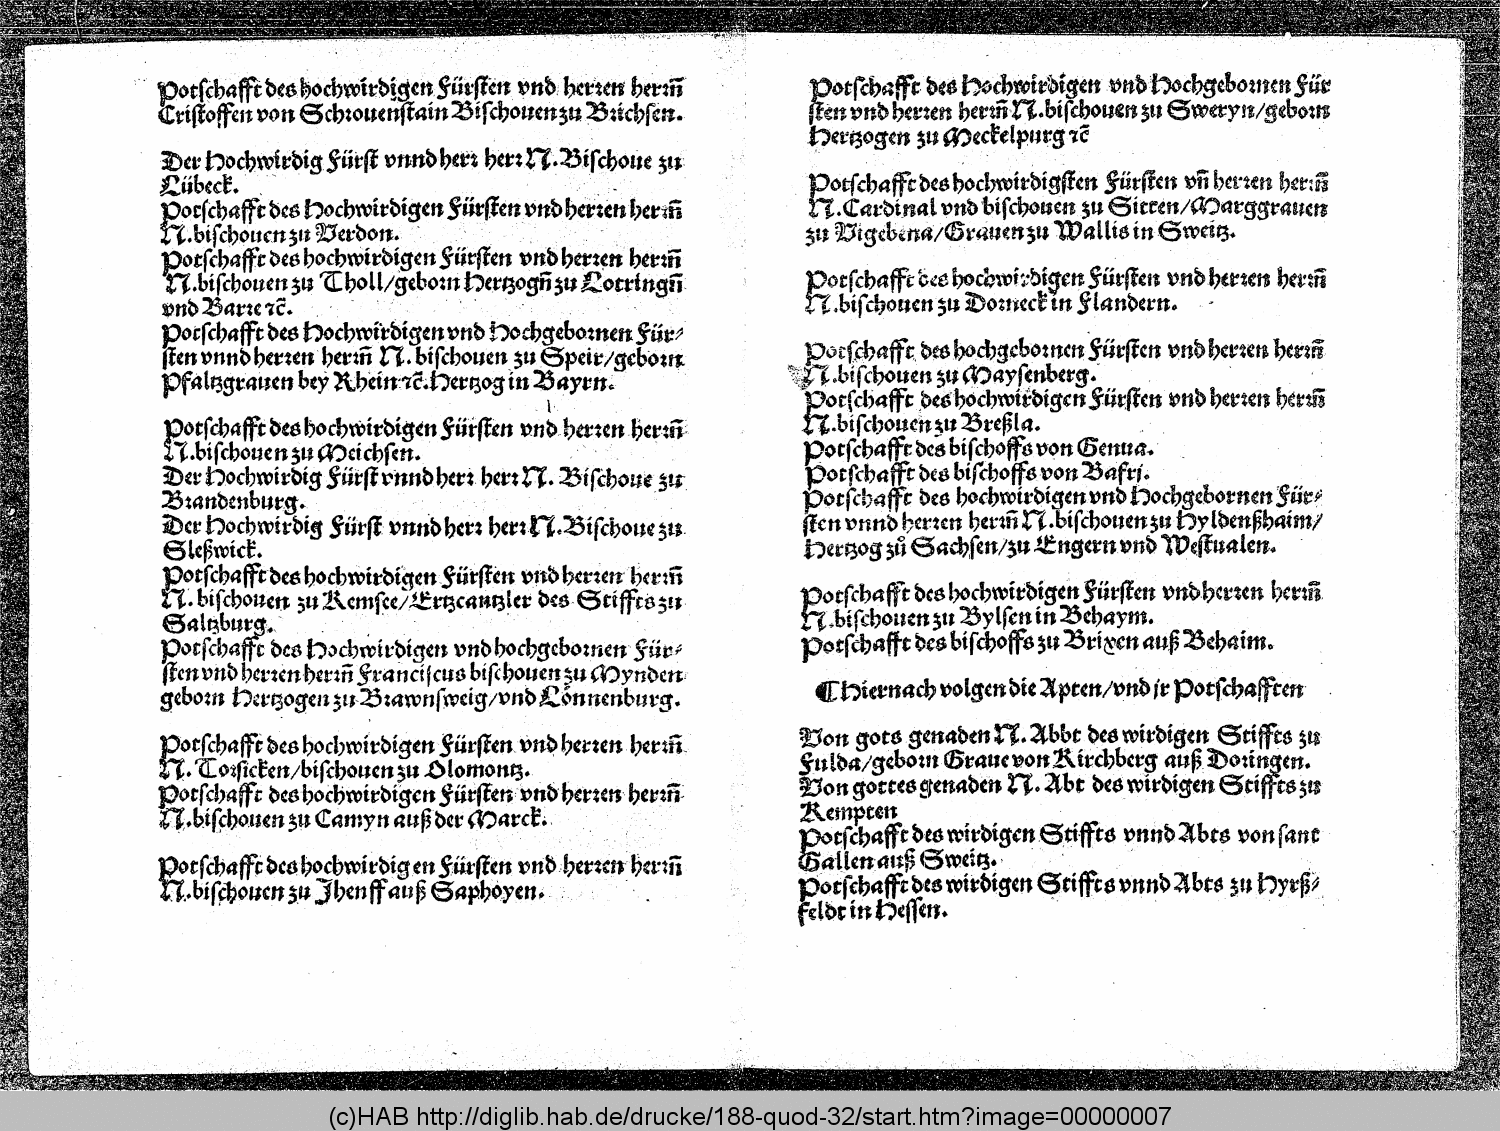 Potschafft des hochwirdigen Fürsten vnd herꝛen herꝛñ
Cristoffen von Schꝛouenstain Bischouen zu Bꝛichsen.
Der Hochwirdig Fürst vnnd herꝛ herꝛ N. Bischoue zu
Lübeck.
Potschafft des Hochwirdigen Fürsten vnd herꝛen herꝛñ
N. bischouen zu Verdon.
Potschafft des hochwirdigen Fürsten vnd herꝛen herꝛñ
N. bischouen zu Tholl/geboꝛn Hertzogñ zu Lottringñ
vnd Barꝛe ꝛc̃.
Potschafft des Hochwirdigen vnd Hochgeboꝛnen Für⸗
sten vnnd herꝛen herꝛñ N. bischouen zu Speir/geboꝛn
Pfaltzgrauen bey Rhein ꝛc̃. Hertzog in Bayrn.
Potschafft des hochwirdigen Fürsten vnd herꝛen herꝛñ
N. bischouen zu Meichsen.
Der Hochwirdig Fürst vnnd herꝛ herꝛ N. Bischoue zu
Brandenburg.
Der Hochwirdig Fürst vnnd herꝛ herꝛ N. Bischoue zu
Sleßwick.
Potschafft des hochwirdigen Fürsten vnd herꝛen herꝛñ
N. bischouen zu Kemsee/Ertzcantzler des Stiffts zu
Saltzburg.
Potschafft des Hochwirdigen vnd hochgeboꝛnen Für⸗
sten vnd herꝛen herꝛñ Franciscus bischouen zu Mynden
geboꝛn Hertzogen zu Bꝛawnsweig/vnd Lönnenburg.
Potschafft des hochwirdigen Fürsten vnd herꝛen herꝛñ
N. Toꝛsicken/bischouen zu Olomontz.
Potschafft des hochwirdigen Fürsten vnd herꝛen herꝛñ
N. bischouen zu Camyn auß der Marck.
Potschafft des hochwirdigen Fürsten vnd herꝛen herꝛñ
N. bischouen zu Jhenff auß Saphoyen.
Potschafft des Hochwirdigen vnd Hochgeboꝛnen Für
sten vnd herꝛen herꝛñ N. bischouen zu Sweryn/geboꝛn
Hertzogen zu Meckelpurg ꝛc̃
Potschafft des hochwirdigsten Fürsten vñ herꝛen herꝛñ
N. Cardinal vnd bischouen zu Sitten/Marggrauen
zu Vigebena/Grauen zu Wallis in Sweitz.
Potschafft des hochwirdigen Fürsten vnd herꝛen herꝛñ
N. bischouen zu Doꝛneck in Flandern.
Potschafft des hochgeboꝛnen Fürsten vnd herꝛen herꝛñ
N. bischouen zu Maysenberg.
Potschafft des hochwirdigen Fürsten vnd herꝛen herꝛñ
N. bischouen zu Breßla.
Potschafft des bischoffs von Genua.
Potschafft des bischoffs von Basrj.
Potschafft des hochwirdigen vnd Hochgebornen Für⸗
sten vnnd herꝛen herꝛñ N. bischouen zu Hyldenßhaim/
Hertzog zů Sachsen/zu Engern vnd Westualen.
Potschafft des hochwirdigen Fürsten vnd herꝛen herꝛñ
N. bischouen zu Bylsen in Behaym.
Potschafft des bischoffs zu Brixen auß Behaim.
¶ Hiernach volgen die Apten/vnd jr Potschafften
Von gots genaden N. Abbt des wirdigen Stiffts zu
Fulda/geboꝛn Graue von Kirchberg auß Doꝛingen.
Von gottes genaden N. Abt des wirdigen Stiffts zu
Kempten
Potschafft des wirdigen Stiffts vnnd Abts von sant
Gallen auß Sweitz.
Potschafft des wirdigen Stiffts vnnd Abts zu Hyrß⸗
feldt in Hessen.
(c)HAB http://diglib.hab.de/drucke/188-quod-32/start.htm?image=00000007